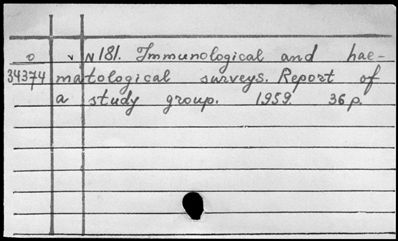 o v N 181. Immunological and hae-
34374 matological surveys. Report of
a study group. 1959. 36 p.